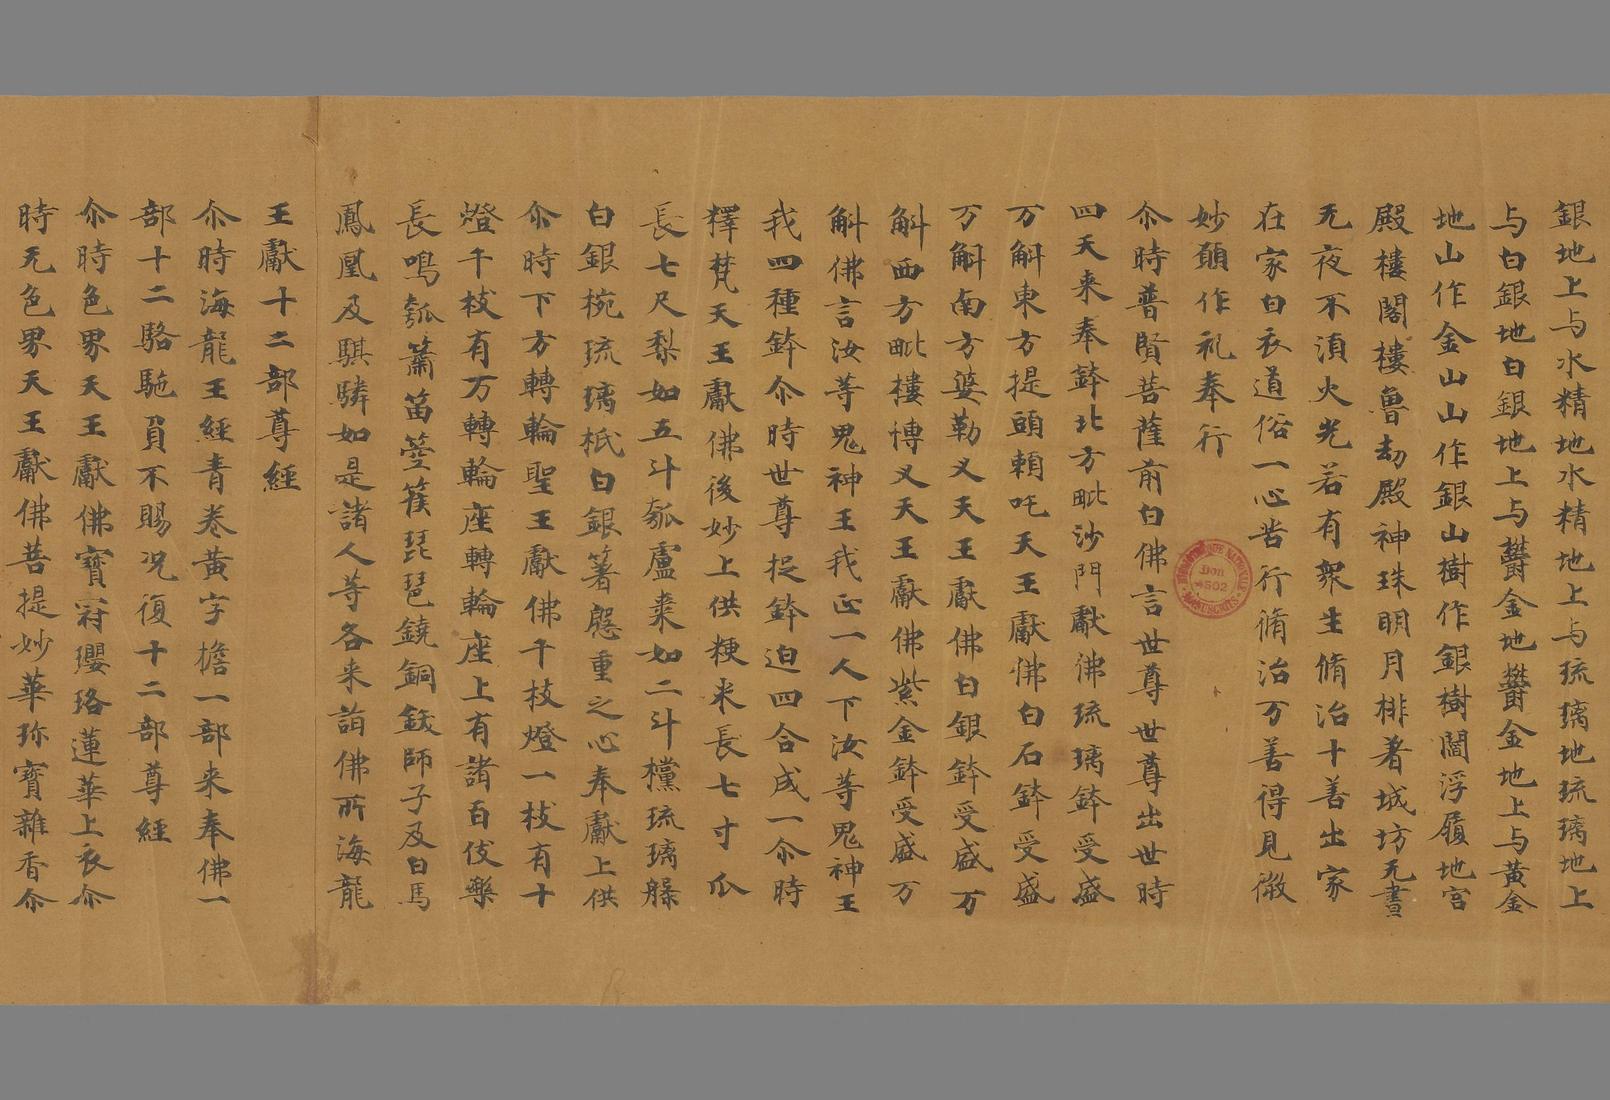 銀地上与水精地水精地上与琉璃地琉璃地上
与白銀地白銀地上与欝金地欝金地上与黄金
地山作金山山作銀山樹作銀樹閻浮履地宫
殿樓閣樓魯劫殿神珠明月排著城坊无晝
无夜不湏火光若有衆生脩治十善出家
在家白衣道俗一心苦行脩治万善得見微
妙願作礼奉行
尒時普賢菩薩前白佛言世尊世尊出世時
四天来奉鉢北方毗沙門獻佛琉璃鉢受盛
万斛東方提頭頼吒天王獻佛白石鉢受盛
万斛南方婆勒叉天王獻佛白銀鉢受盛万
斛西方毗樓博叉天王獻佛紫金鉢受盛万
斛佛言汝等鬼神王我正一人下汝等鬼神王
我四種鉢尒時世尊捉鉢迫四合成一尒時
釋梵天王獻佛後妙上供粳米長七寸瓜
長七尺梨如五斗瓠盧棗如二斗欓琉璃
白銀椀琉璃柢白銀箸慇重之心奉獻上供
尒時下方轉輪聖王獻佛千枝燈一枝有十
燈千枝有万轉輪座轉輪座上有諸百伎樂
長鳴瓠簫笛箜篌琵琶鐃銅鈸師子及白馬
鳳凰及騏驎如是諸人等各来詣佛所海龍
王獻十二部尊經
尒時海龍王經青巻黄字擔一部来奉佛一
部十二駱駞負不賜况復十二部尊經
尒時色界天王獻佛寳冠瓔珞蓮華上衣尒
時无色界天王獻佛菩提妙華珎寳雜香尒
Don 4502
MANUSCRITS